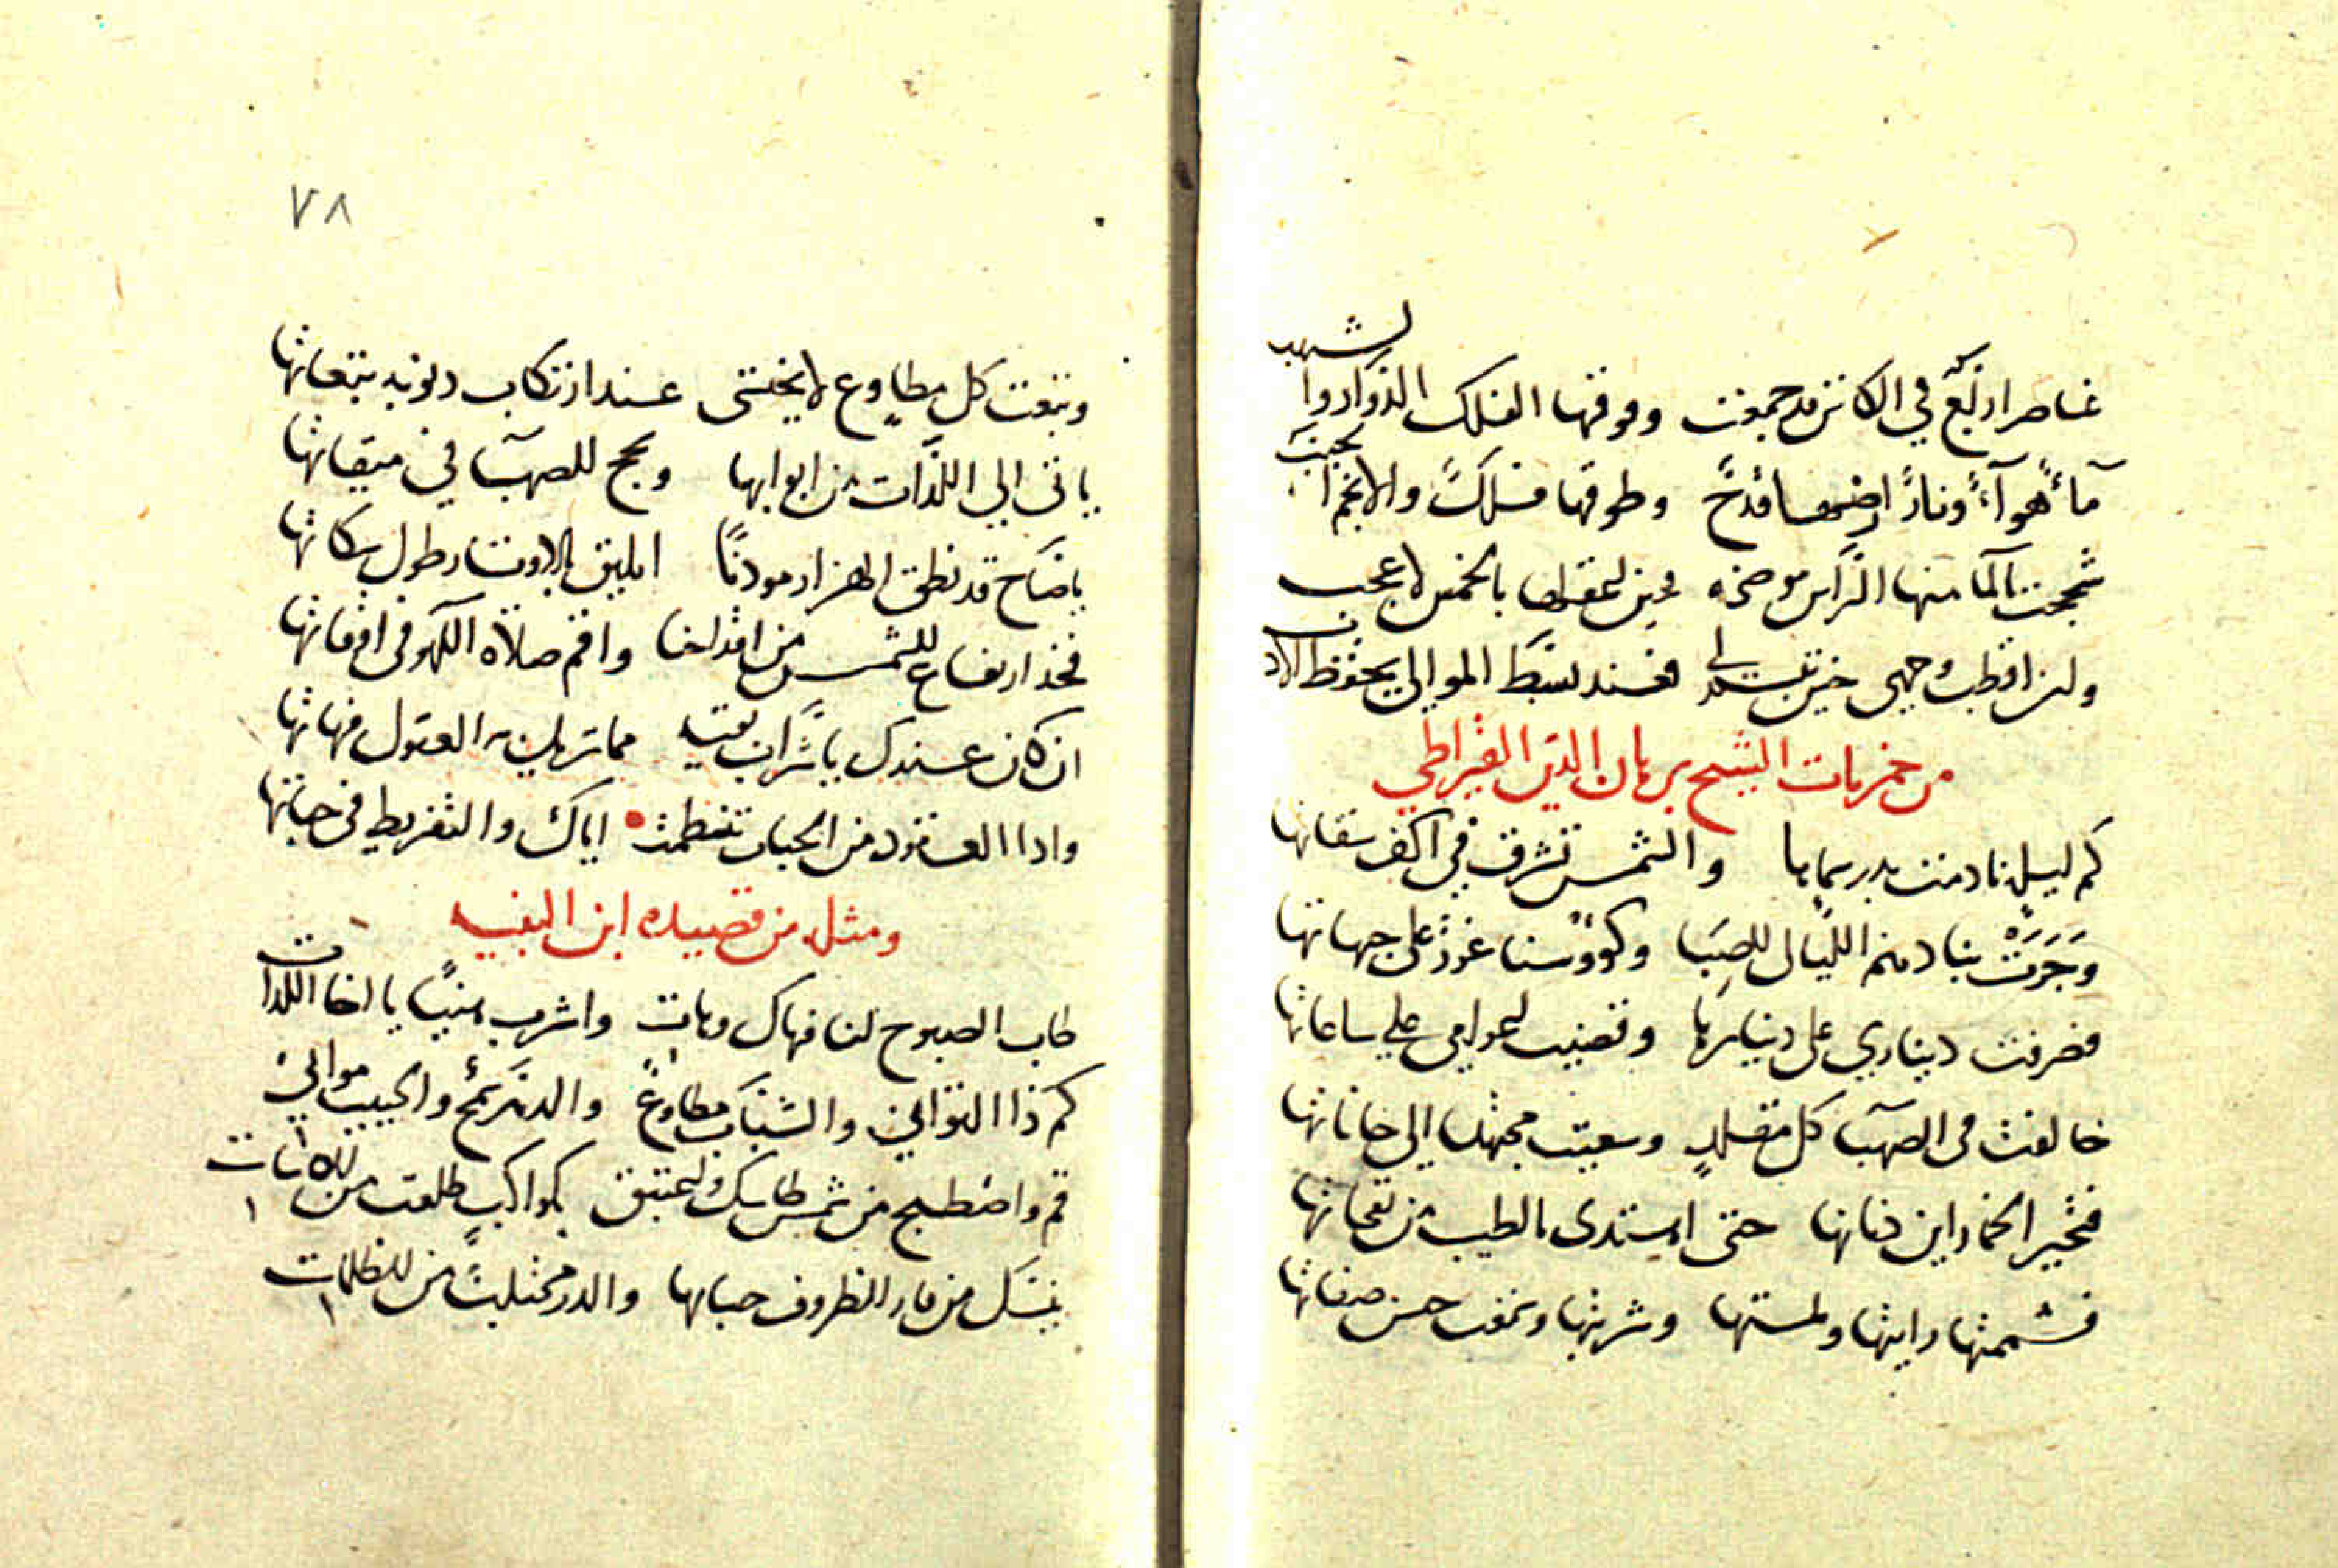 عناصر اربع في الكاس قد جمعت وفوقها الفلك الدوار والشهب
مآءً هوآءً ونارً ارضها قدحً وطوقها فلكً والانجم الحبب
شججت بالما منها الراس موضحه فحين اعقلها بالخمس لا عجب
ولن اقطب وجهي حين تبسم لي فعند بسط الموالي يحفظ الادب
من خمريات الشيخ برهان الدين القيراطي
كم ليلة نادمت بدر سمايها والشمس تشرق في اكف سقاتها
وَجَرَتْ بنا دهم الليال للصبا وكووسنا غررٌ على جهاتها
فصرفت ديناري على دينارها وقضيت اعوامي علي ساعاتها
خالفت في الصهبا كل مقلدٍ وسعيت مجتهدا الى حاناتها
فتحير الخمار اين دنانها حتى اهتدى بالطيب من نفحاتها
فشممتها ورايتها ولمستها وشربتها وسمعت حسن صفاتها
٧٨
وتبعت كل مطاوع لا يختشى عند ارتكاب ذنوبه تبعاتها
ياتى الي اللذات من ابوابها ويحج للصهبآ في ميقاتها
يا صاح قد نطق الهزار موذنًا ايليق بالاوتار طول سكاتها
فخذ ارتفاع الشمس من اقداحنا واقم صلاة اللهو في اوقاتها
ان كان عندك يا شراب بقيه مما تزيل به العقول فهاتها
واذا العقود من الحباب تنظمت اياك والتفريط في حباتها
ومثله من قصيده ابن النبيه
طاب الصبوح لنا فهاك وهات واشرب هنيًا يا اخا اللذات
كم ذا التواني والشباب مطاوعً والدهر سمح والحبيب مواتي
قم واصطبح من شمس كاسك واغتبق بكواكبٍ طلعت من الكاسات
من قار الظروف حبابها والدر مجتلبً من الظلمات